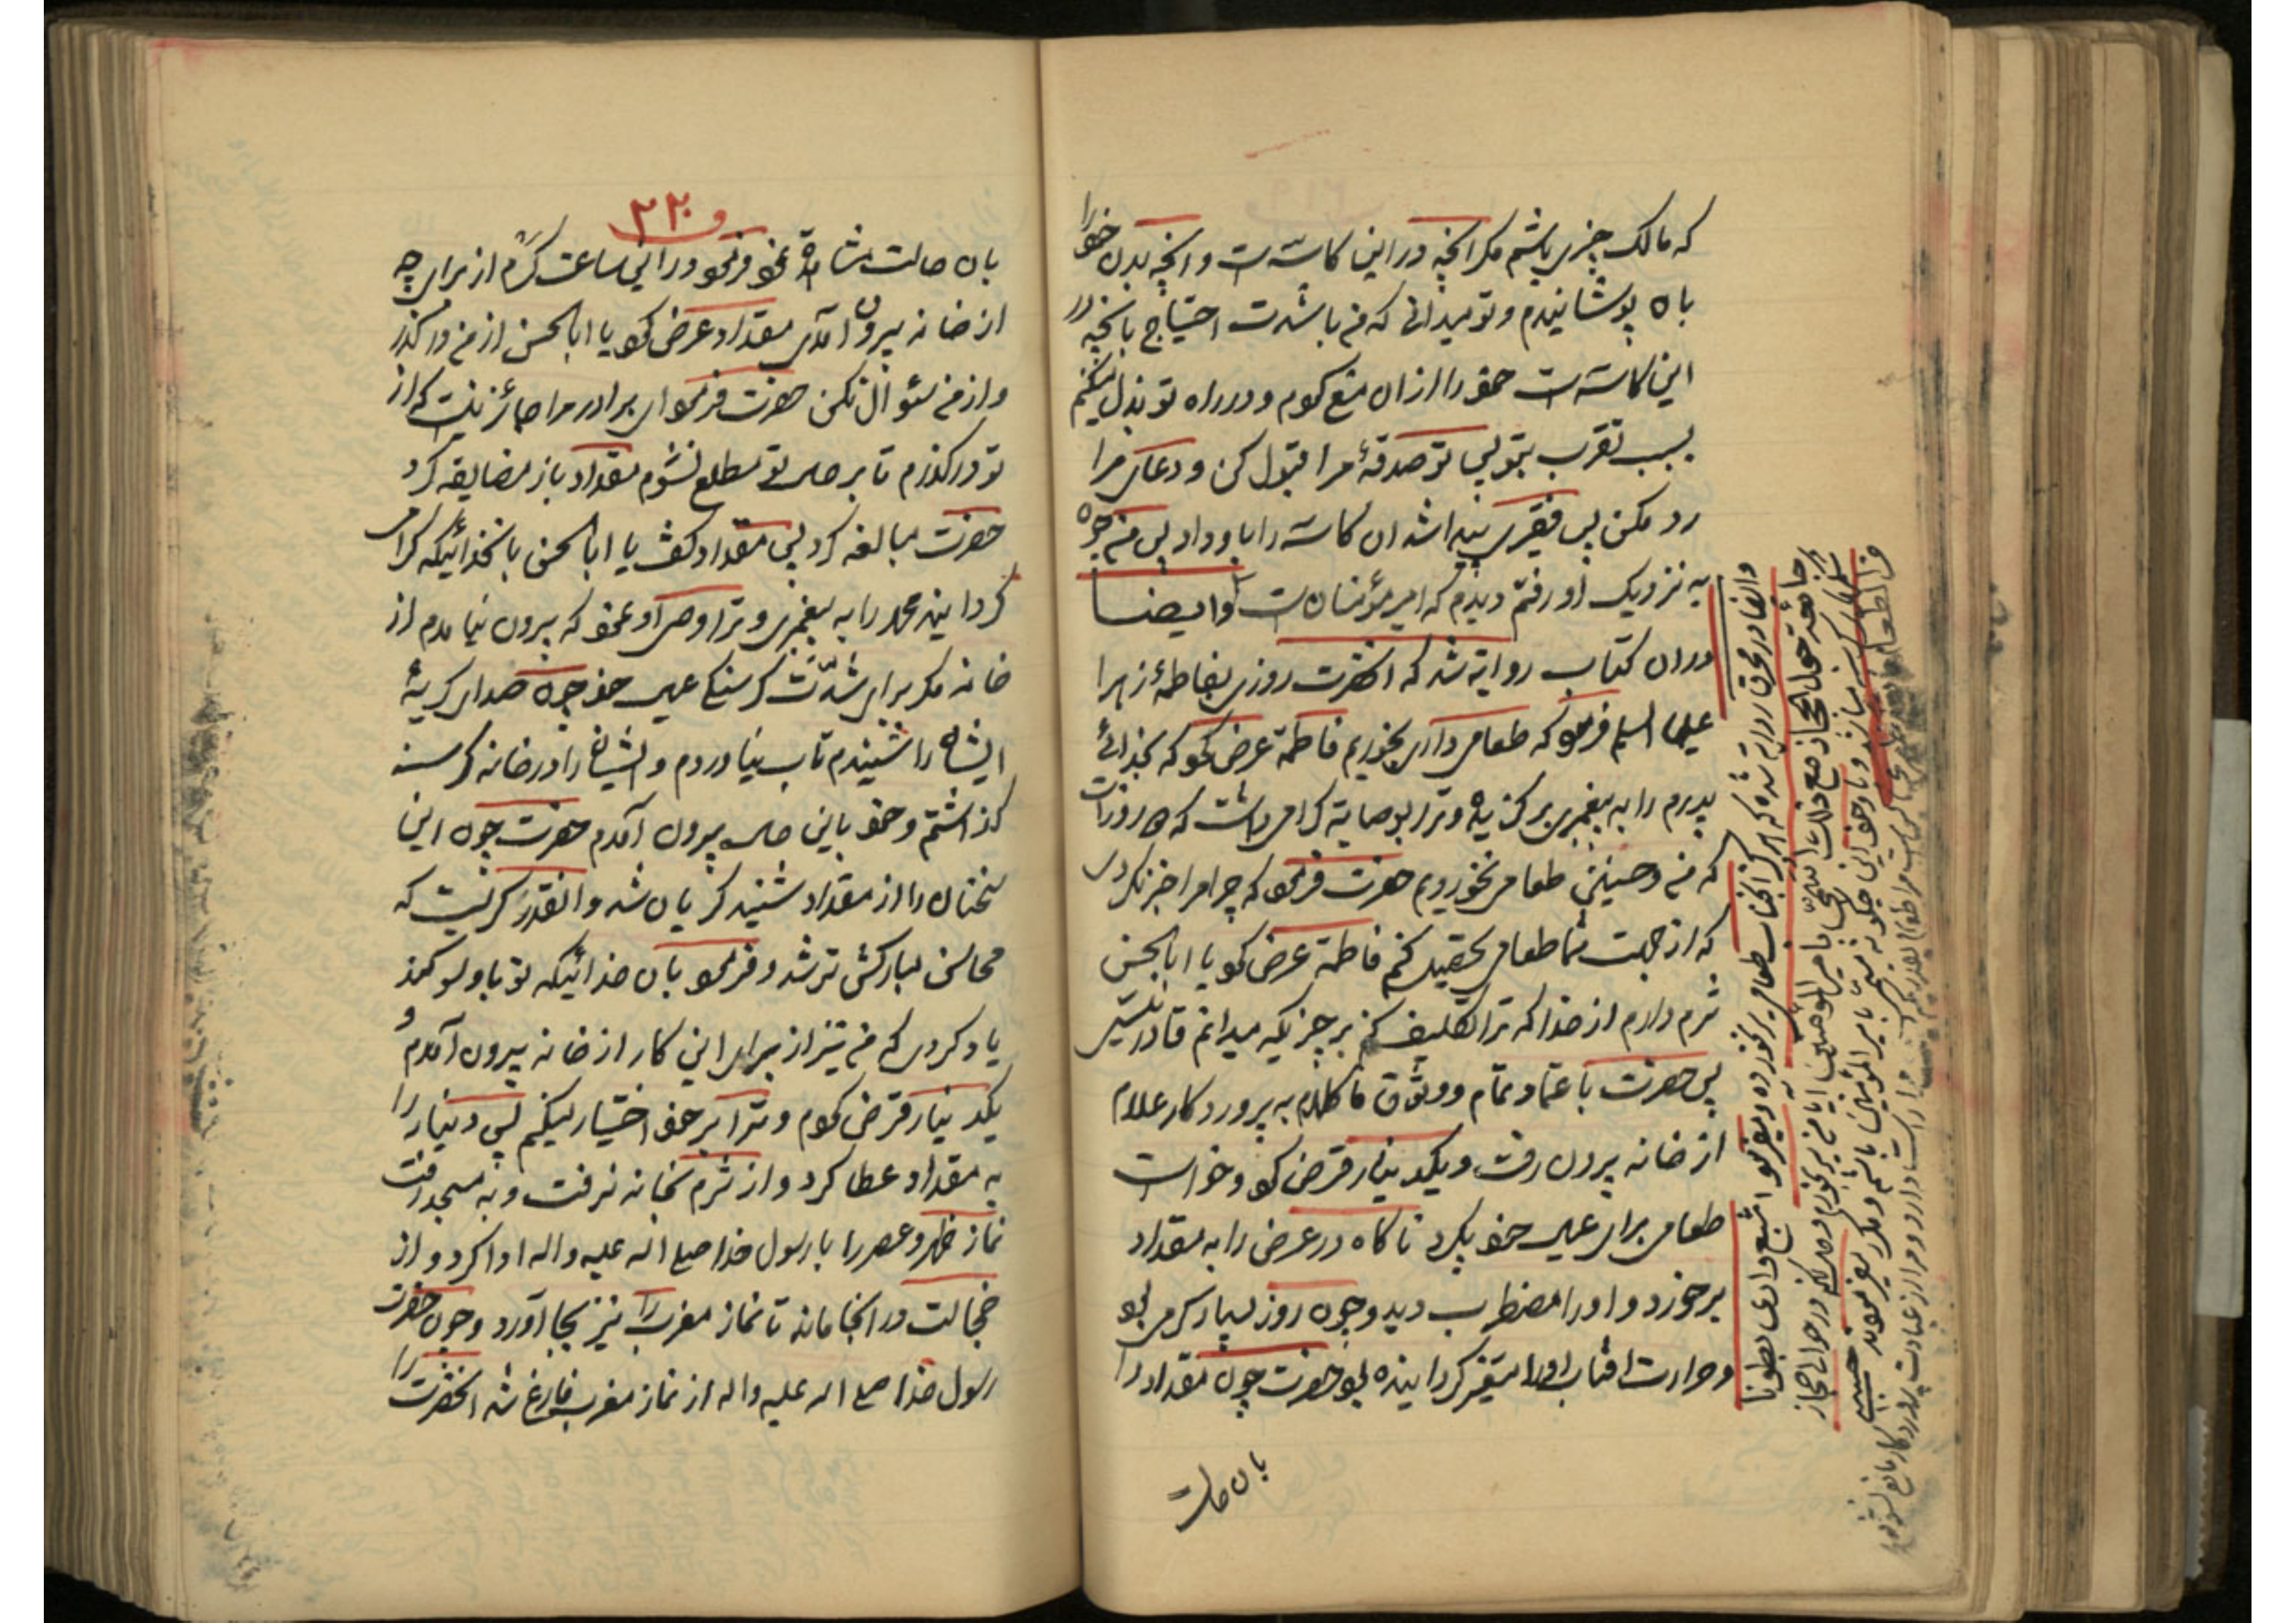 که مالک چیزی باشم مکر انچه در این کاسه است و انچه بدن خود را
بان پوشانیدم و تو میدانی که من با شدت احتیاج بانچه در
این کاسه است خود را از ان منع کردم و در راه تو بذل میکنم
بسبب تقرب بتو پس تو صدقهٔ مرا قبول کن و دعای مرا
رد مکن پس فقیری پیدا شد ان کاسه را باو داد پس من چون
به نزدیک او رفتم دیدم که امیر مؤمنان است و ایضا
در ان کتاب روایة شد که انحضرت روزی بفاطمهٔ زهرا
علیها السلم فرمود که طعامی داری بخوریم فاطمة عرض نمود که بخدائی
پدرم را به پیغمبری برکزیده و ترا بوصایة کرامی داشت که دو روز است
که من و حسنین طعامی نخوردیم حضرت فرمود که چرا مرا خبر نکردی
که از جهت شما طعامی تحصیل کنم فاطمة عرض نمود یا ابا الحسن
شرم دارم از خدا که ترا تکلیف کنم بر چیزیکه میدانم قادر نیستی
پس حضرت با عتماد تمام و وثوق ما کلام به پروردکار علام
از خانه بیرون رفت و یکدینار قرض نمود و خواست
طعامی برای عیال خود بکیرد ناکاه در عرض راه به مقداد
برخورد و او را مضطرب دید و چون روز بسیار کرمی بود
و حرارت افتاب او را متغیر کردانیده بود حضرت چون مقداد را
بان حالت
و ایضا در محرق روایة شده که هرکز انجناب طعام سیر نخورده و میفرمود اشبع و اری بطونا
جائعة حول الحجاز
و در حوالی حجاز
٢٢٠
بان حالت مشاهدة نمود فرمود در این ساعت کرم از برای چه
از خانه بیرون آمدی مقداد عرض نمود یا ابا الحسن از من در کذر
و از من سئوال نکن حضرت فرمود ای برادر مرا جائز نیست که از
تو در کذرم تا بر حال تو مطلع نشوم مقداد باز مضایقه کرد
حضرت مبالغه کرد پس مقداد کفت یا ابا الحسن بانخدائیکه کرامی
کردانید محمد را به پیغمبری و ترا وصی او نمود که بیرون نیامدم از
خانه مکر برای شدت کرسنکی عیال خود چون صدای کریهٔ
ایشان را شنیدم تاب نیاوردم و ایشان را در خانه کرسنه
کذاشتم و خود باین حال بیرون آمدم حضرت چون این
سخنان را از مقداد شنید کریان شد و انقدر کریست که
محاسن مبارکش تر شد و فرمود بان خدائیکه تو باو سوکند
یاد کردی که من نیز از برای این کار از خانه بیرون آمدم و
یکدینار قرض کردم و ترا بر خود اختیار میکنم پس دینار را
به مقداد عطا کرد و از شرم بخانه نرفت و به مسجد رفت
نماز ظهر و عصر را با رسول خدا صلی اله علیه و اله ادا کرد و از
خجالت در انجا ماند تا نماز مغرب را نیز بجا آورد و چون حضرت
رسول خدا صلی اله علیه و اله از نماز مغرب فارغ شد انحضرت را